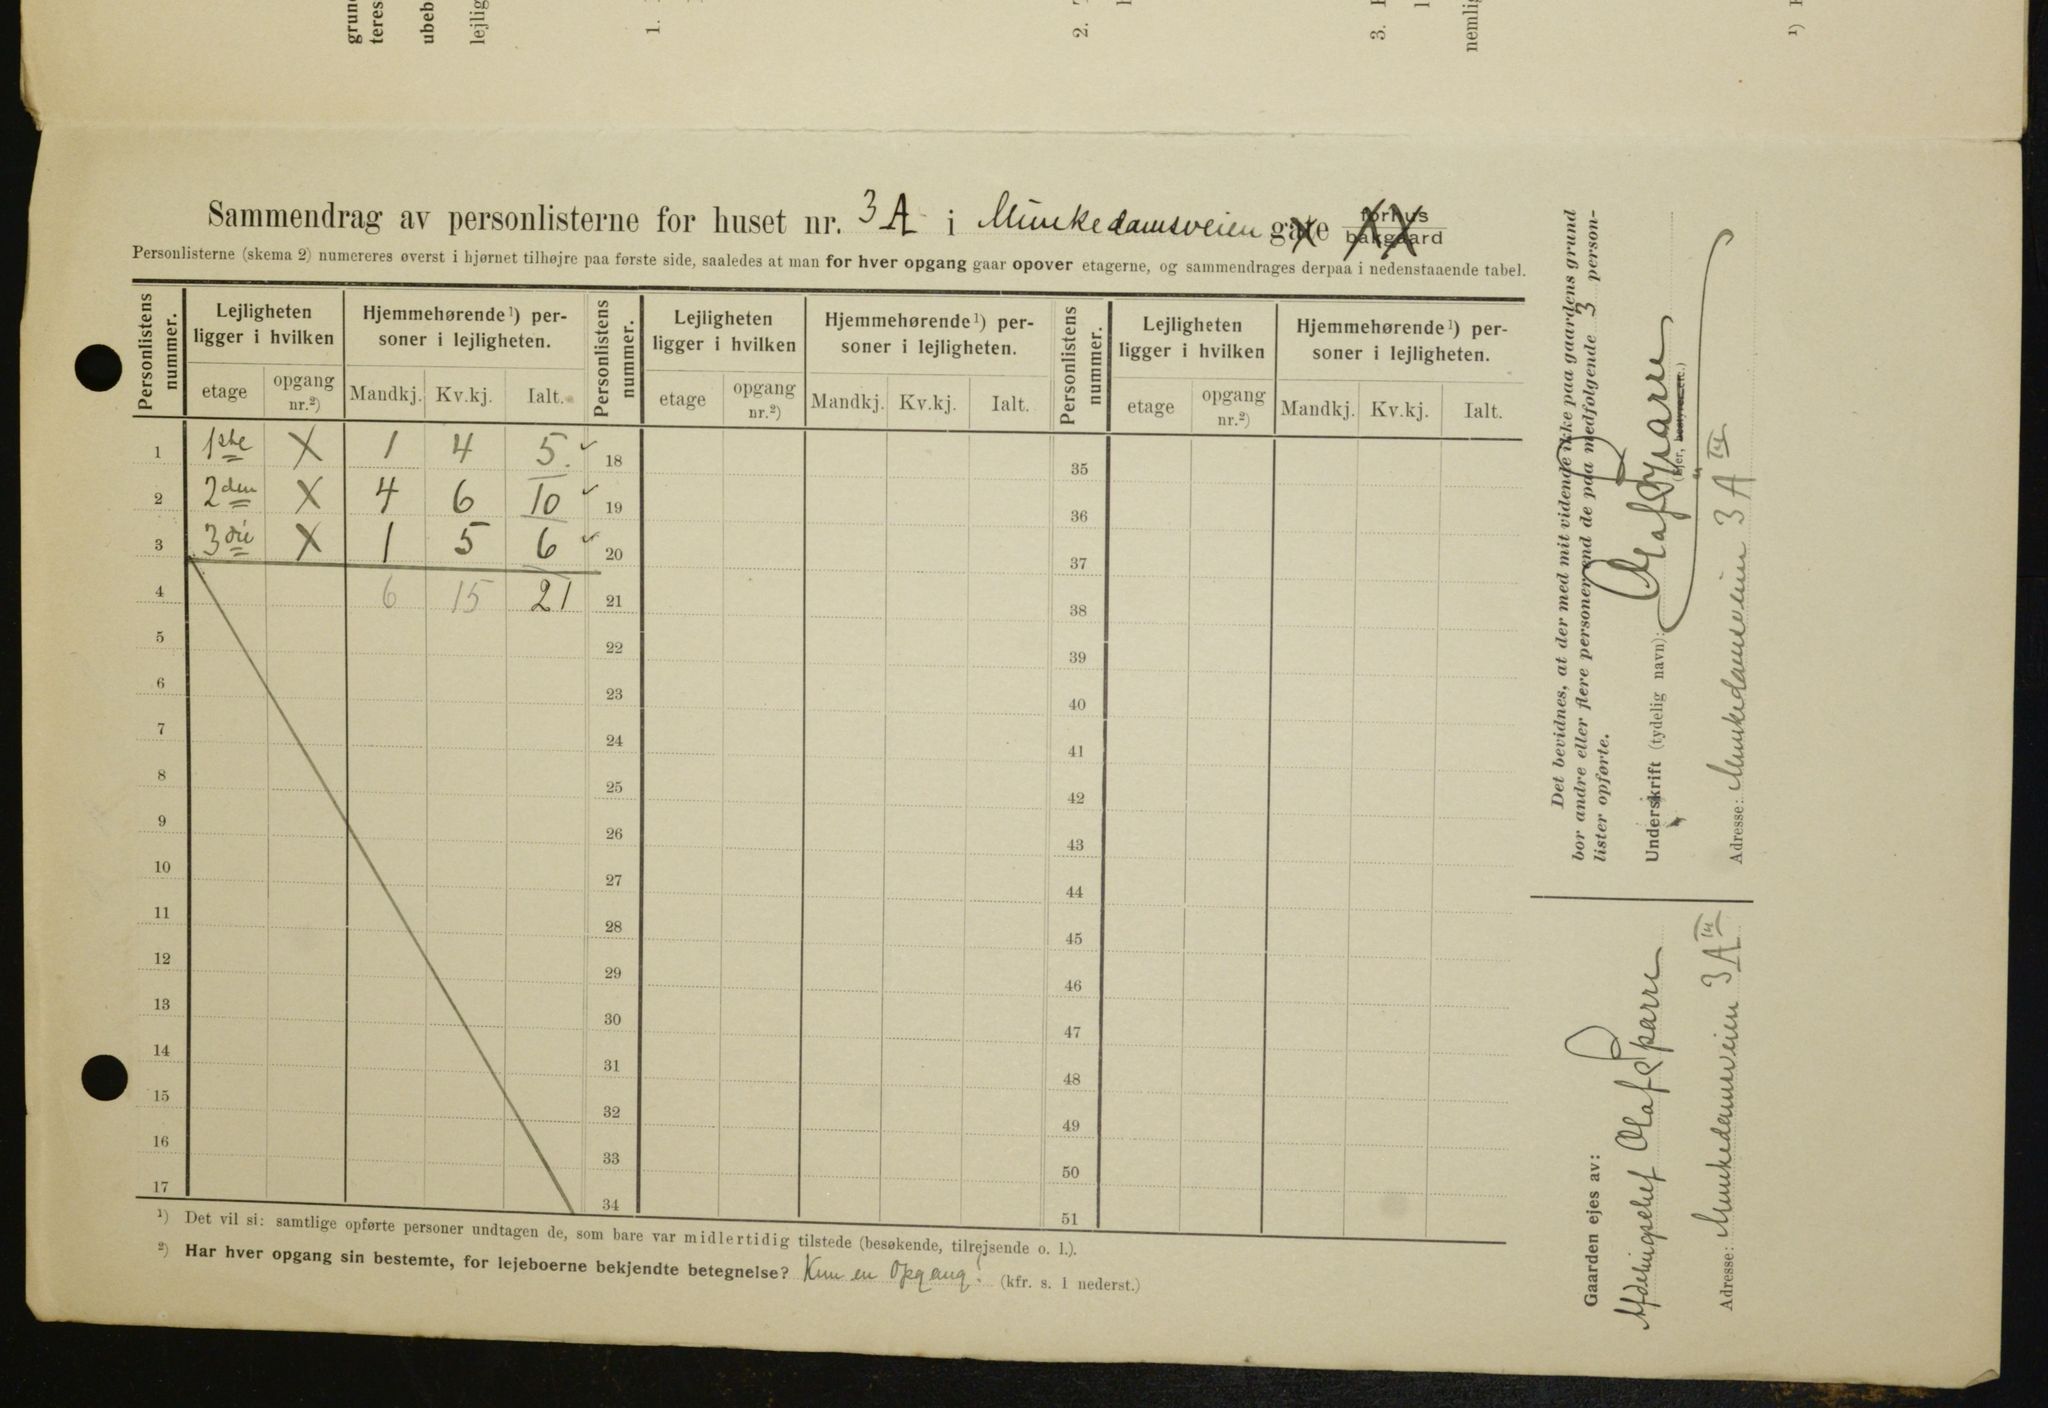 grun
teres
ubeb
lejlig
1.
2.
3.
nemlig
¹)
Sammendrag av personlisterne for huset nr. 3A i Munkedamsveien gate forhus
bakgaard
Personlisterne (skema 2) numereres øverst i hjørnet tilhøjre paa første side, saaledes at man for hver opgang gaar opover etagerne, og sammendrages derpaa i nedenstaaende tabel.
Personlistens nummer. Lejligheten ligger i hvilken Hjemmehørende¹) personer i lejligheten. Personlistens nummer. Lejligheten ligger i hvilken Hjemmehørende¹) personer i lejligheten. Personlistens nummer. Lejligheten ligger i hvilken Hjemmehørende¹) personer i lejligheten.
etage opgang nr.²) Mandkj. Kv.kj. Ialt. etage opgang nr.²) Mandkj. Kv.kj. Ialt. etage opgang nr.²) Mandkj. Kv.kj. Ialt.
1 1ste X 1 4 5. ✓ 18 35
2 2den X 4 6 10 ✓ 19 36
3 3die X 1 5 6 ✓ 20 37
4 6 15 21 21 38
5 22 39
6 23 40
7 24 41
8 25 42
9 26 43
10 27 44
11 28 45
12 29 46
13 30 47
14 31 48
15 32 49
16 33 50
17 34 51
¹) Det vil si: samtlige opførte personer undtagen de, som bare var midlertidig tilstede (besøkende, tilrejsende o. l.).
²) Har hver opgang sin bestemte, for lejeboerne bekjendte betegnelse? Kun en Opgang. (kfr. s. 1 nederst.)
Det bevidnes, at der med mit vidende ikke paa gaardens grund
bor andre eller flere personer end de paa medfølgende 3 person-
lister opførte.
Underskrift (tydelig navn): Olaf Sparre
(Ejer, bestyrer etc.)
Adresse: Munkedamsveien 3 A III
Gaarden ejes av:
Afdelingschef Olaf Sparre
Adresse: Munkedamsveien 3 A III